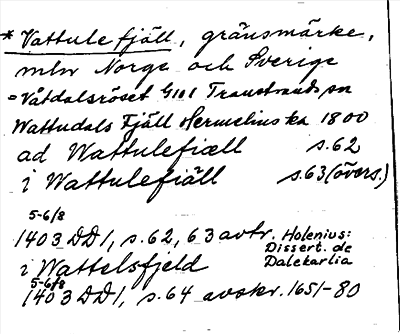 * Vattule fjäll, gränsmärke,
mln Norge och Sverige
= Våtdalsröset G111 Transtrands sn
Wattudals Fjäll Hermelins ka 1800
ad Wattulefiæll s. 62
i Wattulefiäll s. 63 (övers.)
5-6/8
1403 DD 1, s. 62, 63 avtr. Holenius:
Dissert. de
Dalekarlia
i Wattelsfjeld
5-6/8
1403 DD 1, s. 64 avskr. 1651-80